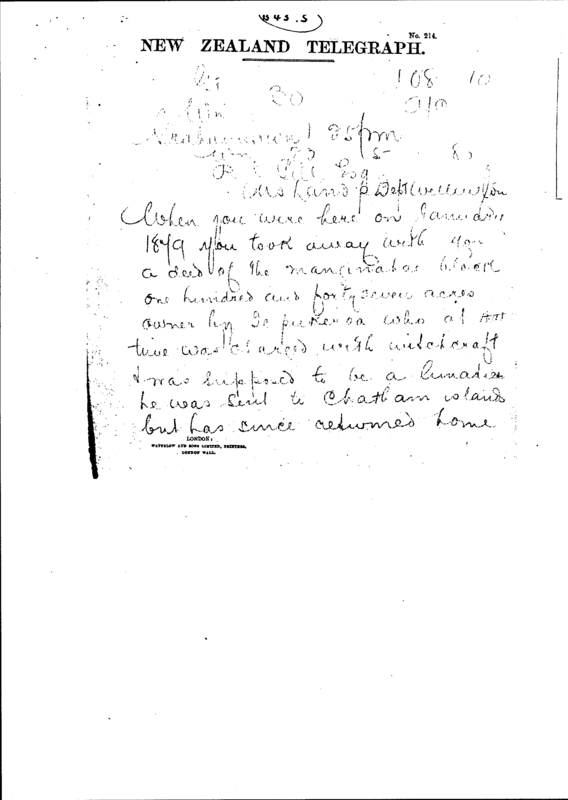 B45.S
No. 214.
NEW ZEALAND TELEGRAPH.
108 10
30
25 pm
Esq
Land P Dept Wellington
When you were here on January
1879 you took away with you
a deed of the block
one hundred and forty seven acres
owner by Te who at that
time was charged with witchcraft
& was supposed to be a lunatic
he was sent to Chatham island
but has since returned home
LONDON:
WATERLOW AND SONS LIMITED, PRINTERS,
LONDON WALL.